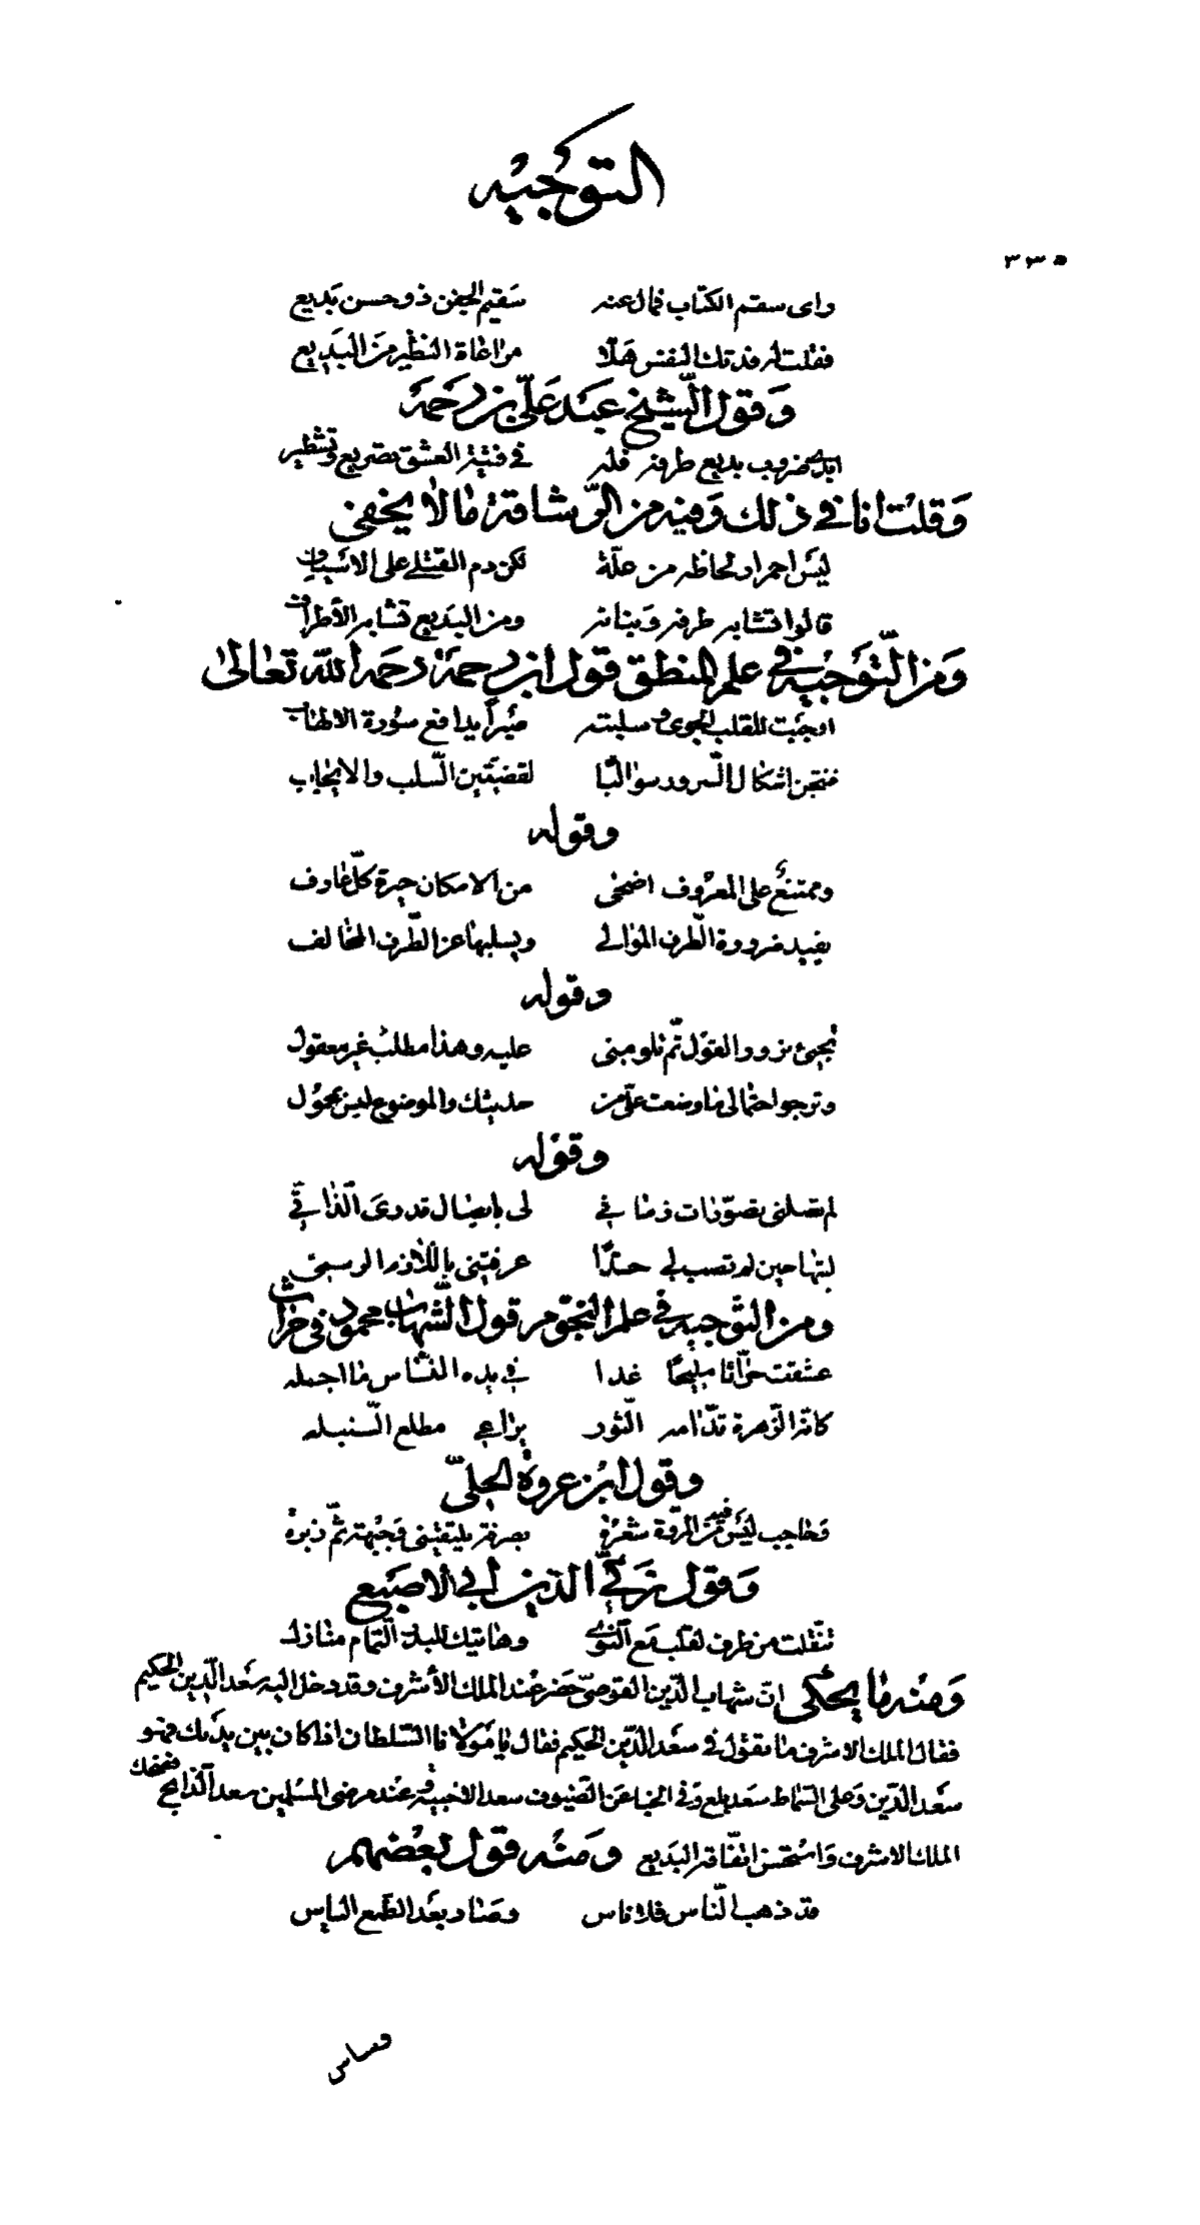 التوجيه
٣٣٥
رأى سقم الكتاب فمال عنه سقيم الجفن ذو حسن بديع
فقلت له فدتك النفس هلّا مراعاة النظير من البديع
وقول الشيخ عبد علي بن رحمة
ضروب بديع طرفه فله في فتية العشق تصريع وتشطير
وقلت انا في ذلك وفيه من الرشاقة ما لا يخفى
ليس احمرار لحاظه من علّة لكن دم القتلى على الاسياف
قالوا تشابه طرفه وبنانه ومن البديع تشابه الأطراف
ومن التوجيه في علم المنطق قول ابن رحمة رحمه الله تعالى
اوجبت للقلب الجوى وسلبته صبراً يدافع سورة الاطناب
فنتجن اشكال السرور سوالبًا لقضيتين السلب والايجاب
وقوله
وممتنع على المعروف اضحى من الامكان حيرة كلّ عارف
يفيد ضرورة الطرف الموالي ويسلبها عن الطرف المخالف
وقوله
تجيئ بزور القول ثم تلومني عليه وهذا مطلب غير معقول
وترجو احتمالي ما وضعت عليّ من حديثك والموضوع ليس بمحمول
وقوله
لم تصلني بصوّرات زماني لي بايصال قدري الذاتيّ
ليتها حين لم تصب لي حدًّا عرفتني باللازم الرسميّ
ومن التوجيه في علم النجوم قول الشهاب محمود في حراث
عشقت حرّاثا مليحًا غدا في يده المسّاس ما اجمله
كانّه الزهرة قدّامه الثور يراعي مطلع السنبله
وقول ابن عروة الحليّ
وحاجب ليس فيه من المروّة شعرة بصرفة يلتقيني وجبهة ثمّ زبرة
وقول زكيّ الدين ابي الاصبع
تنقّلت من طرف لقلب مع النوى وهاتيك للبدر التمام منازل
ومنه ما يحكى انّ شهاب الدّين القوصيّ حضر عند الملك الأشرف وقد دخل اليه سعد الدّين الحكيم
فقال الملك الاشرف ما تقول في سعد الدّين الحكيم فقال يا مولانا السّلطان اذا كان بين يديك فهو
سعد الدّين وعلى السّماط سعد بلع وفي الخبا عن الضيوف سعد الاخبية وعند مرضى المسلمين سعد الذّابح فضحك
الملك الاشرف واستحسن اتّفاقه البديع ومنه قول بعضهم
قد ذهب النّاس فلا ناس وصار بعد الطمع الياس
وساس